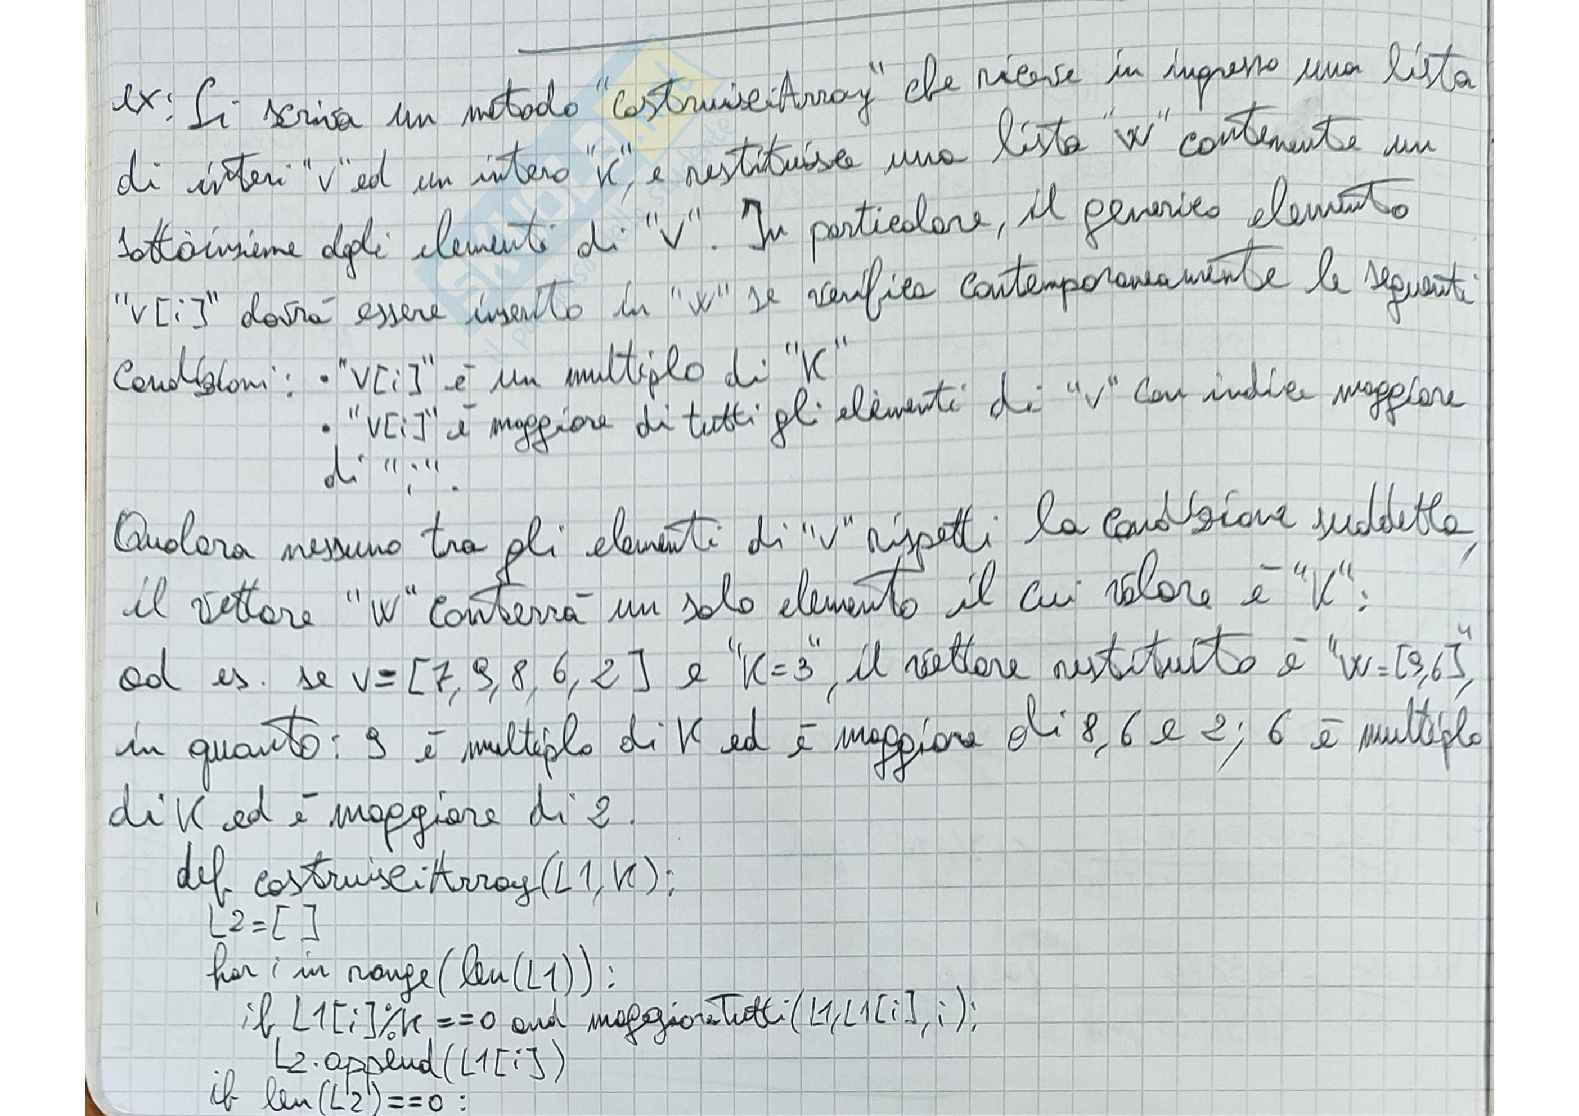 ex: Si scriva un metodo "costruisciArray" che riceve in ingresso una lista
di interi "v" ed un intero "K", e restituisce una lista "W" contenente un
sottoinsieme degli elementi di "V". In particolare, il generico elemento
"V[i]" dovrà essere inserito in "W" se verifica contemporaneamente le seguenti
Condizioni: • "V[i]" è un multiplo di "K"
• "V[i]" è maggiore di tutti gli elementi di "V" con indice maggiore
di "i".
Qualora nessuno tra gli elementi di "V" rispetti la condizione suddetta,
il vettore "W" conterrà un solo elemento il cui valore è "K":
ad es. se v=[7,9,8,6,2] e "K=3", il vettore restituito è "W=[9,6]",
in quanto: 9 è multiplo di K ed è maggiore di 8,6 e 2; 6 è multiplo
di K ed è maggiore di 2.
def costruisciArray(L1,K):
L2=[]
for i in range(len(L1)):
if L1[i]%K==0 and maggioreTutti(L1,L1[i],i):
L2.append(L1[i])
if len(L2)==0: